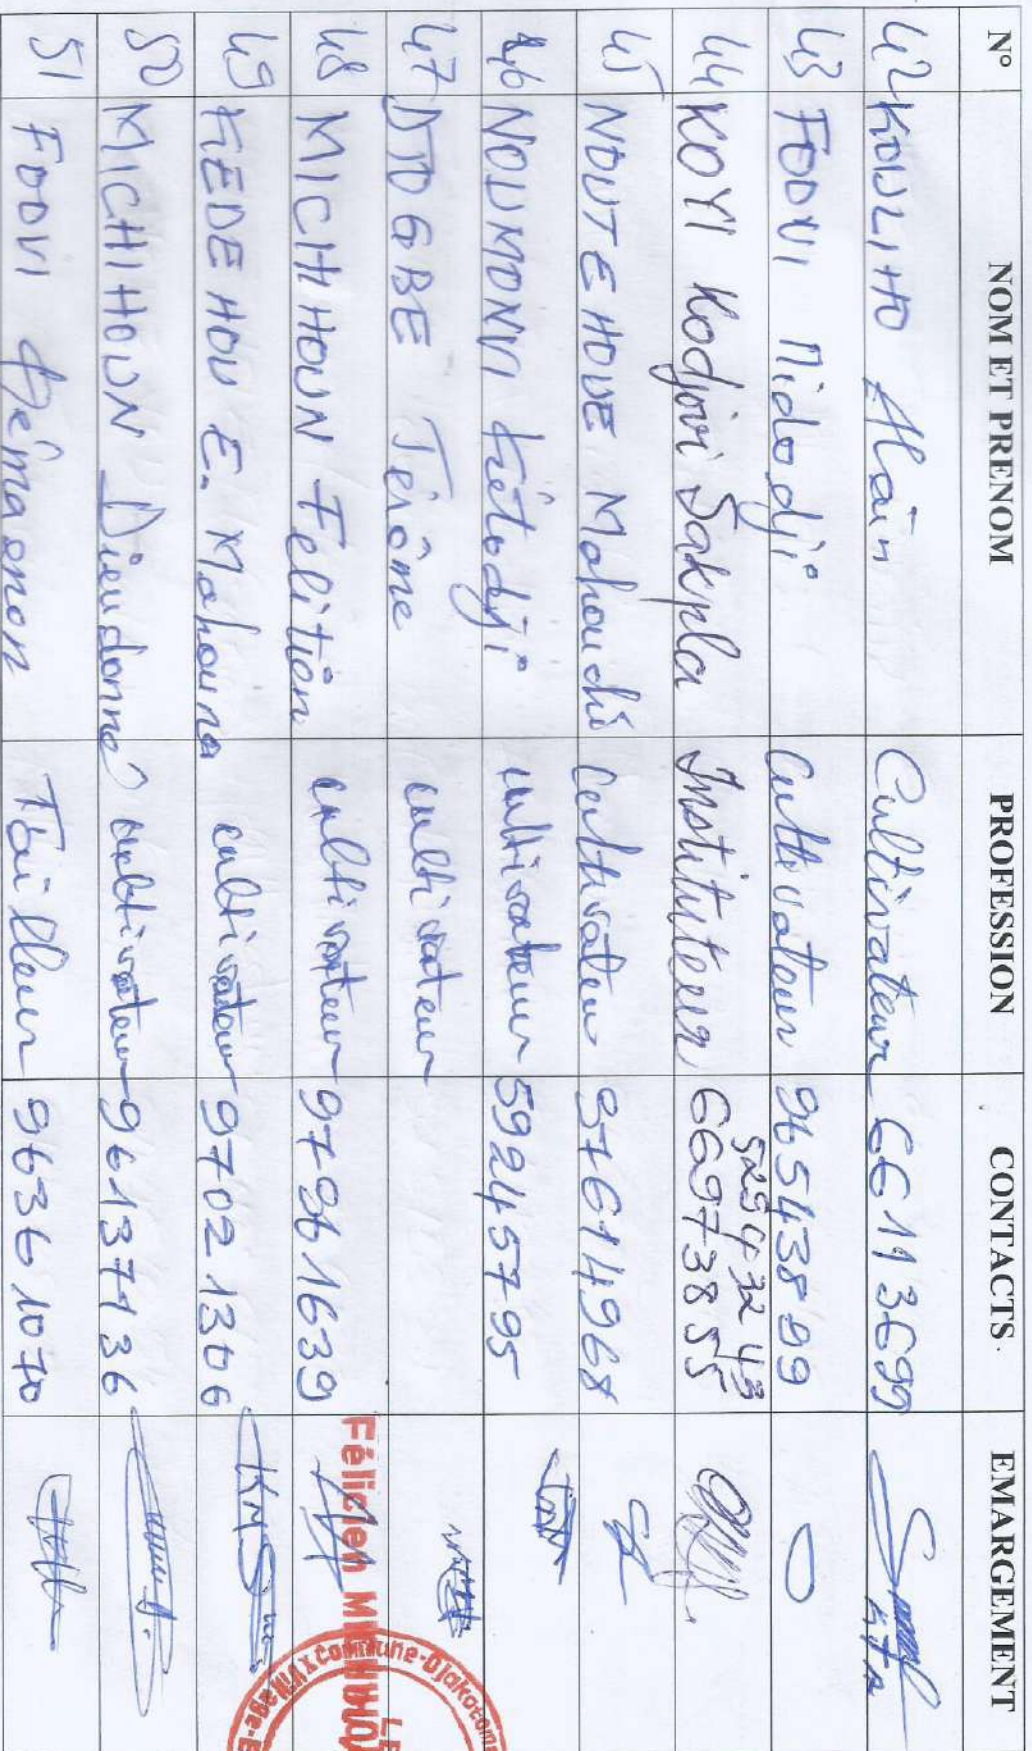 N° NOM ET PRENOM PROFESSION CONTACTS EMARGEMENT
42 KOULIHO Alain Cultivateur 66113699
43 FODVI Midodji Cultivateur 96543899
52943243
44 KOYI Kodjovi Sakpla Instituteur 66973855
45 NOUTEHOUE Mahouchi Cultivateur 97614968
46 NOUMONVI Kétodji cultivateur 59245795
47 DTOGBE Térôme cultivateur
48 MICHIHOUN Felitien cultivateur 97961639
Félicien
49 KEDEHOU E. Mahouna cultivateur 97021306
KMS
50 MICHIHOUN Dieudonné cultivateur 96137136
51 FODVI Démagnon Tailleur 96361070